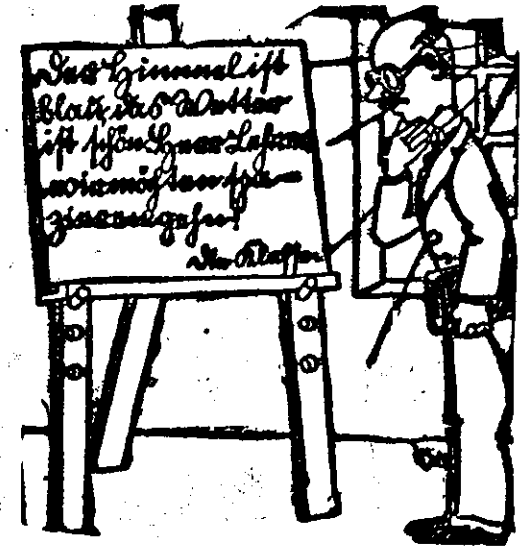 Der Himmel ist
blau, das Wetter
ist schön. Herr Lehrer
wir möchten spa-
zieren gehen!
Die Klasse.